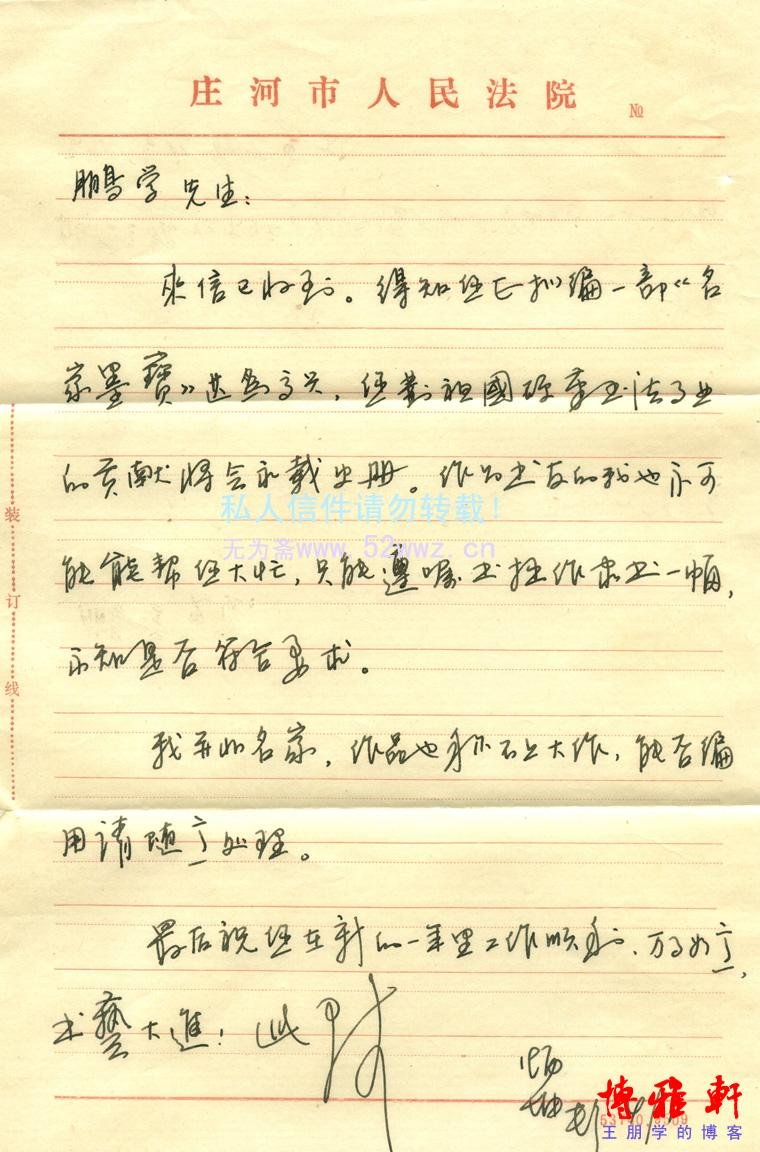 庄河市人民法院 №
鹏学先生：
来信已收到。得知您正拟编一部《名
家墨寶》甚为高兴，您對祖國硬筆书法事业
的贡献将会永载史册。作为书友的我也不可
能能帮您大忙，只能遵嘱书拙作求书一幅，
不知是否符合要求。
我并非名家，作品也称不上大作，能否编
用请随意处理。
最后祝您在新的一年里工作顺利、万事如意，
书藝大進！此致
装
订
线
私人信件请勿转载！
无为斋www.52wwz.cn
博雅軒
王朋学的博客